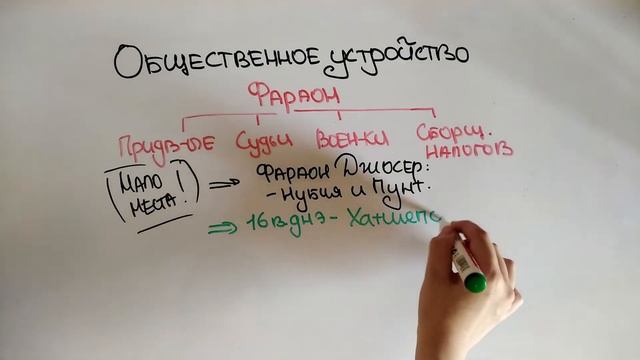 Общественное устройство
Фараон
Придв-ые Судьи Воен-ки Сборщ. налогов
(Мало места!) => Фараон Джосер:
- Нубия и Пунт.
=> 16 в днэ - Хатшепс